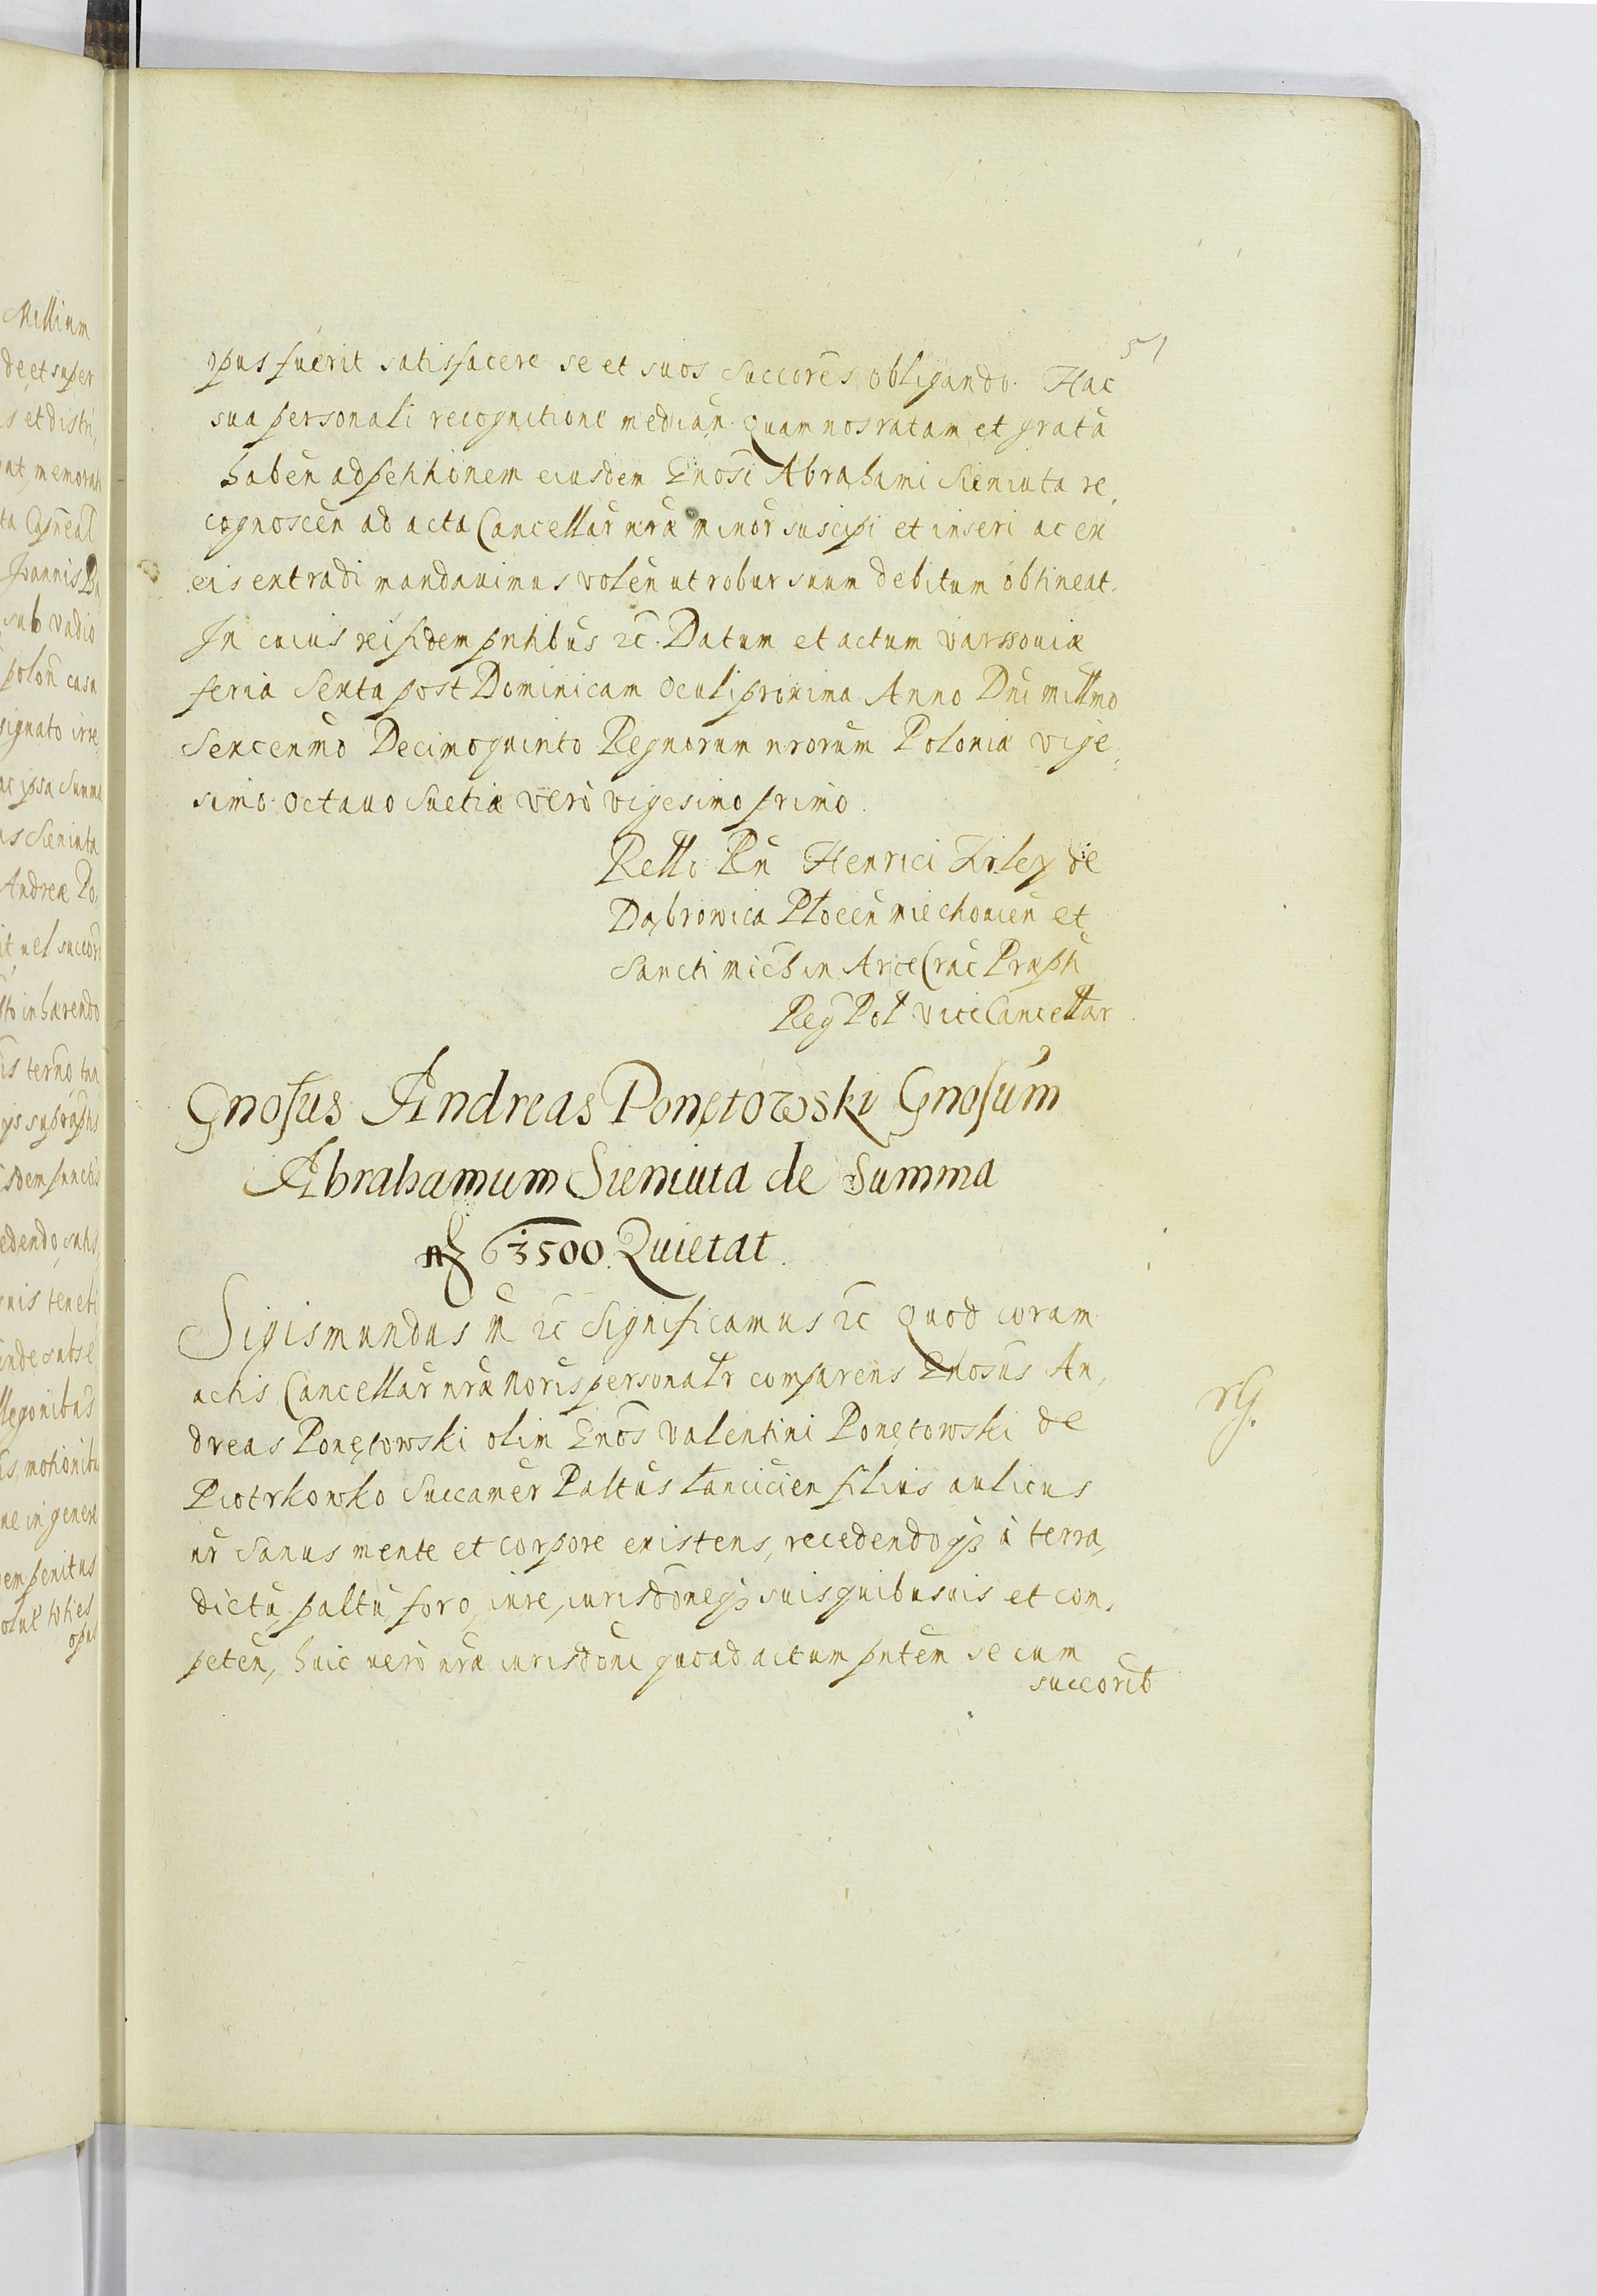 51
opus fuerit satisfacere se et suos succores obligando. Hac
sua personali recognitione median. Quam nos ratam et gratã
haben ad petitionem eiusdem Gnosi Abrahami Sieniuta re,
cognoscen ad acta Cancellar nræ minor suscipi et inseri ac ex
eis extradi mandauimus volen ut robur suum debitum obtineat.
In cuius rei fidem pntibus &c. Datum et actum Varssouiæ
feria Sexta post Dominicam Oculi proxima Anno Dni millmo
Sexcenmo Decimoquinto Regnorum nrorum Poloniæ vige,
simo octauo Suetiæ verò vigesimo primo.
Rello Rn Henrici Firley de
Dąbrowica Plocen miechouien et
Sancti Mich in Arce Crac Præpti
Reg Pol ViceCancellar.
Gnosus Andreas Ponętowski Gnosum
Abrahamum Sieniuta de Summa
63500. Quietat.
Sigismundus &c Significamus &c Quod coram
actis Cancellar nræ Noris personalr comparens Gnosus An,
dreas Ponętowski olim Gnos Valentini Ponętowski de
Piotrkowko Succamer Paltus Lancicien filius aulicus
nr Sanus mente et corpore existens, recedendoqz à terra,
dictu, paltu, foro, iure, iurisdoneqz suis quibusuis et com,
peten, huic uerò nræ iurisdoni quoad actum pntem se cum
succorib
rG.
Millium
de, et super
et distri,
memorati
Joannis
sub vadio
polon casu
signato irre,
ac ipsa Summa
Sieniuta
Andreæ Po,
uel succor
inhærendo
edendo,
teneti
in genere
penitus
opus